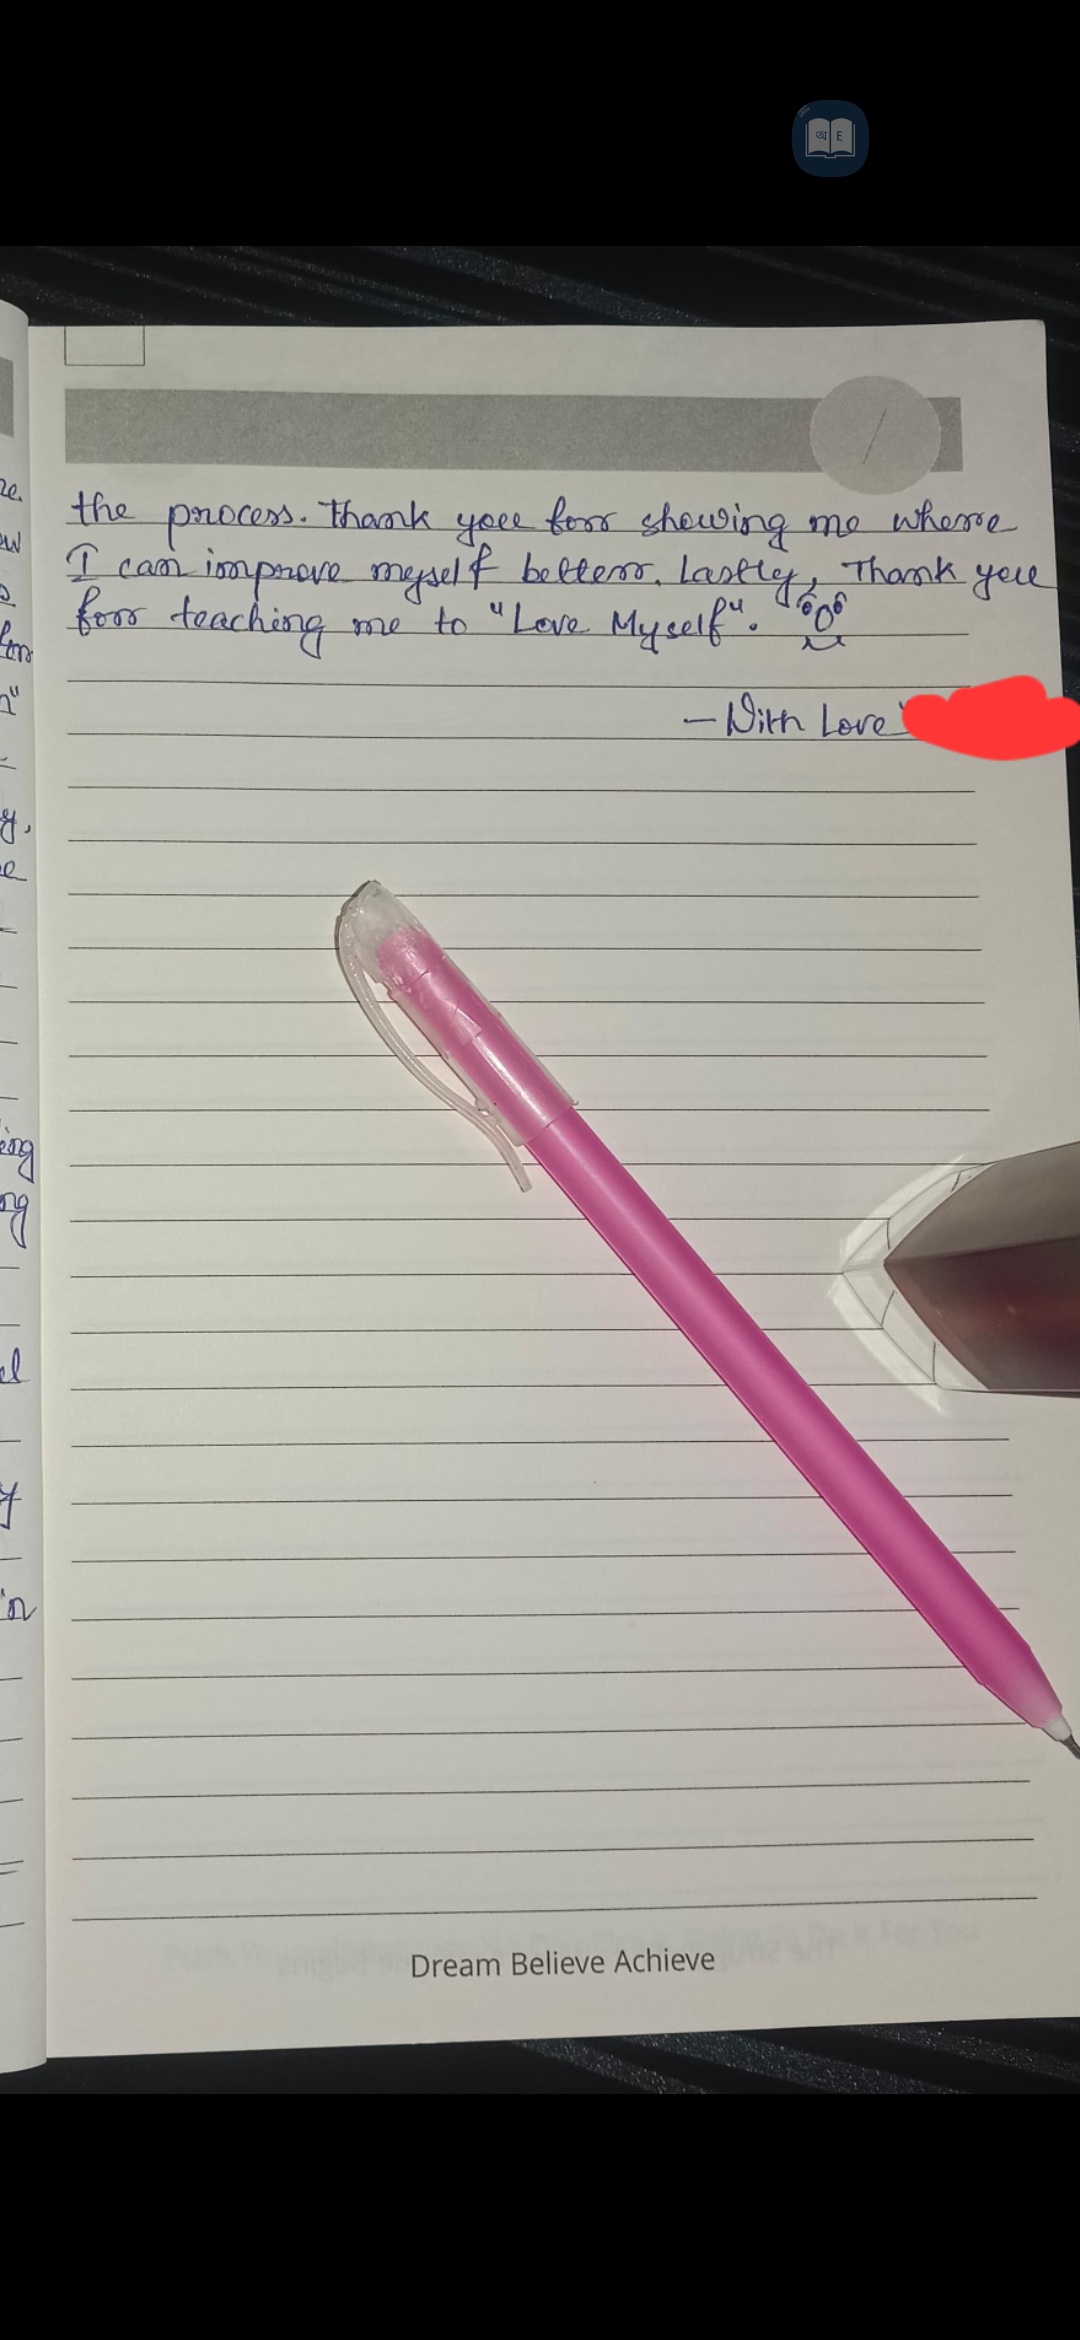 the process. Thank you for showing me where
I can improve myself better. Lastly, Thank you
for teaching me to "Love Myself".
– With Love
Dream Believe Achieve